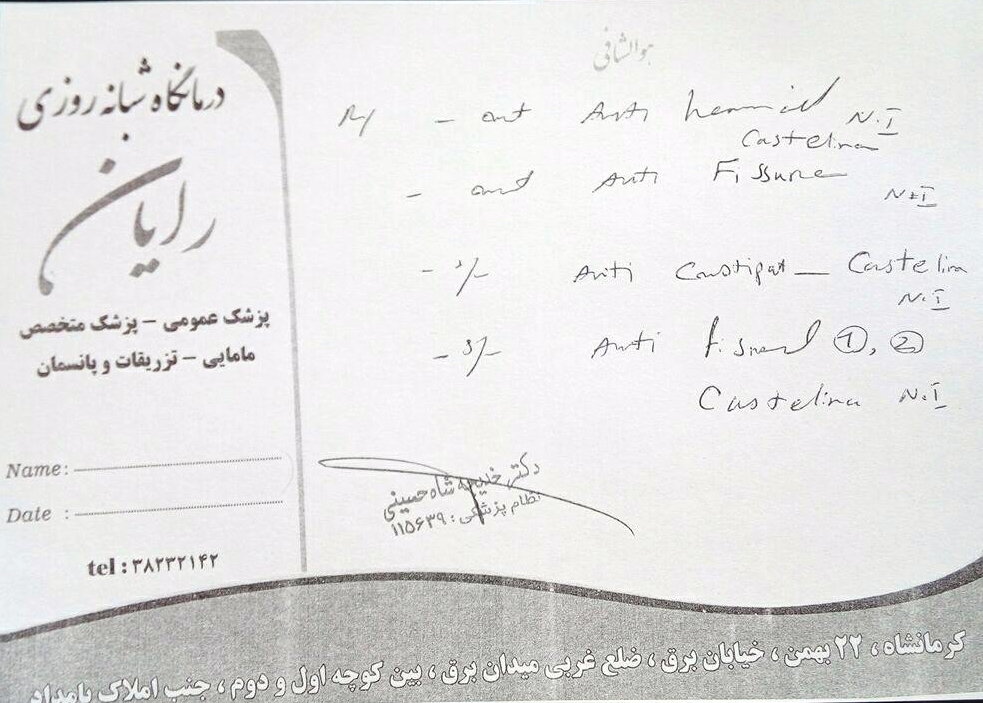 هوالشافی
درمانگاه شبانه روزی
رایان
پزشک عمومی - پزشک متخصص
مامایی - تزریقات و پانسمان
Name:
Date :
tel : ۳۸۲۳۲۱۴۲
- Anti N.I
Castelina
- Anti Fissure
N=I
- Anti Constipat — Castelina
N.I
- Anti ①, ②
Castelina N.I
دکتر خدیجه شاه حسینی
نظام پزشکی : ۱۱۵۶۳۹
کرمانشاه ، ۲۲ بهمن ، خیابان برق ، ضلع غربی میدان برق ، بین کوچه اول و دوم ، جنب املاک بامداد